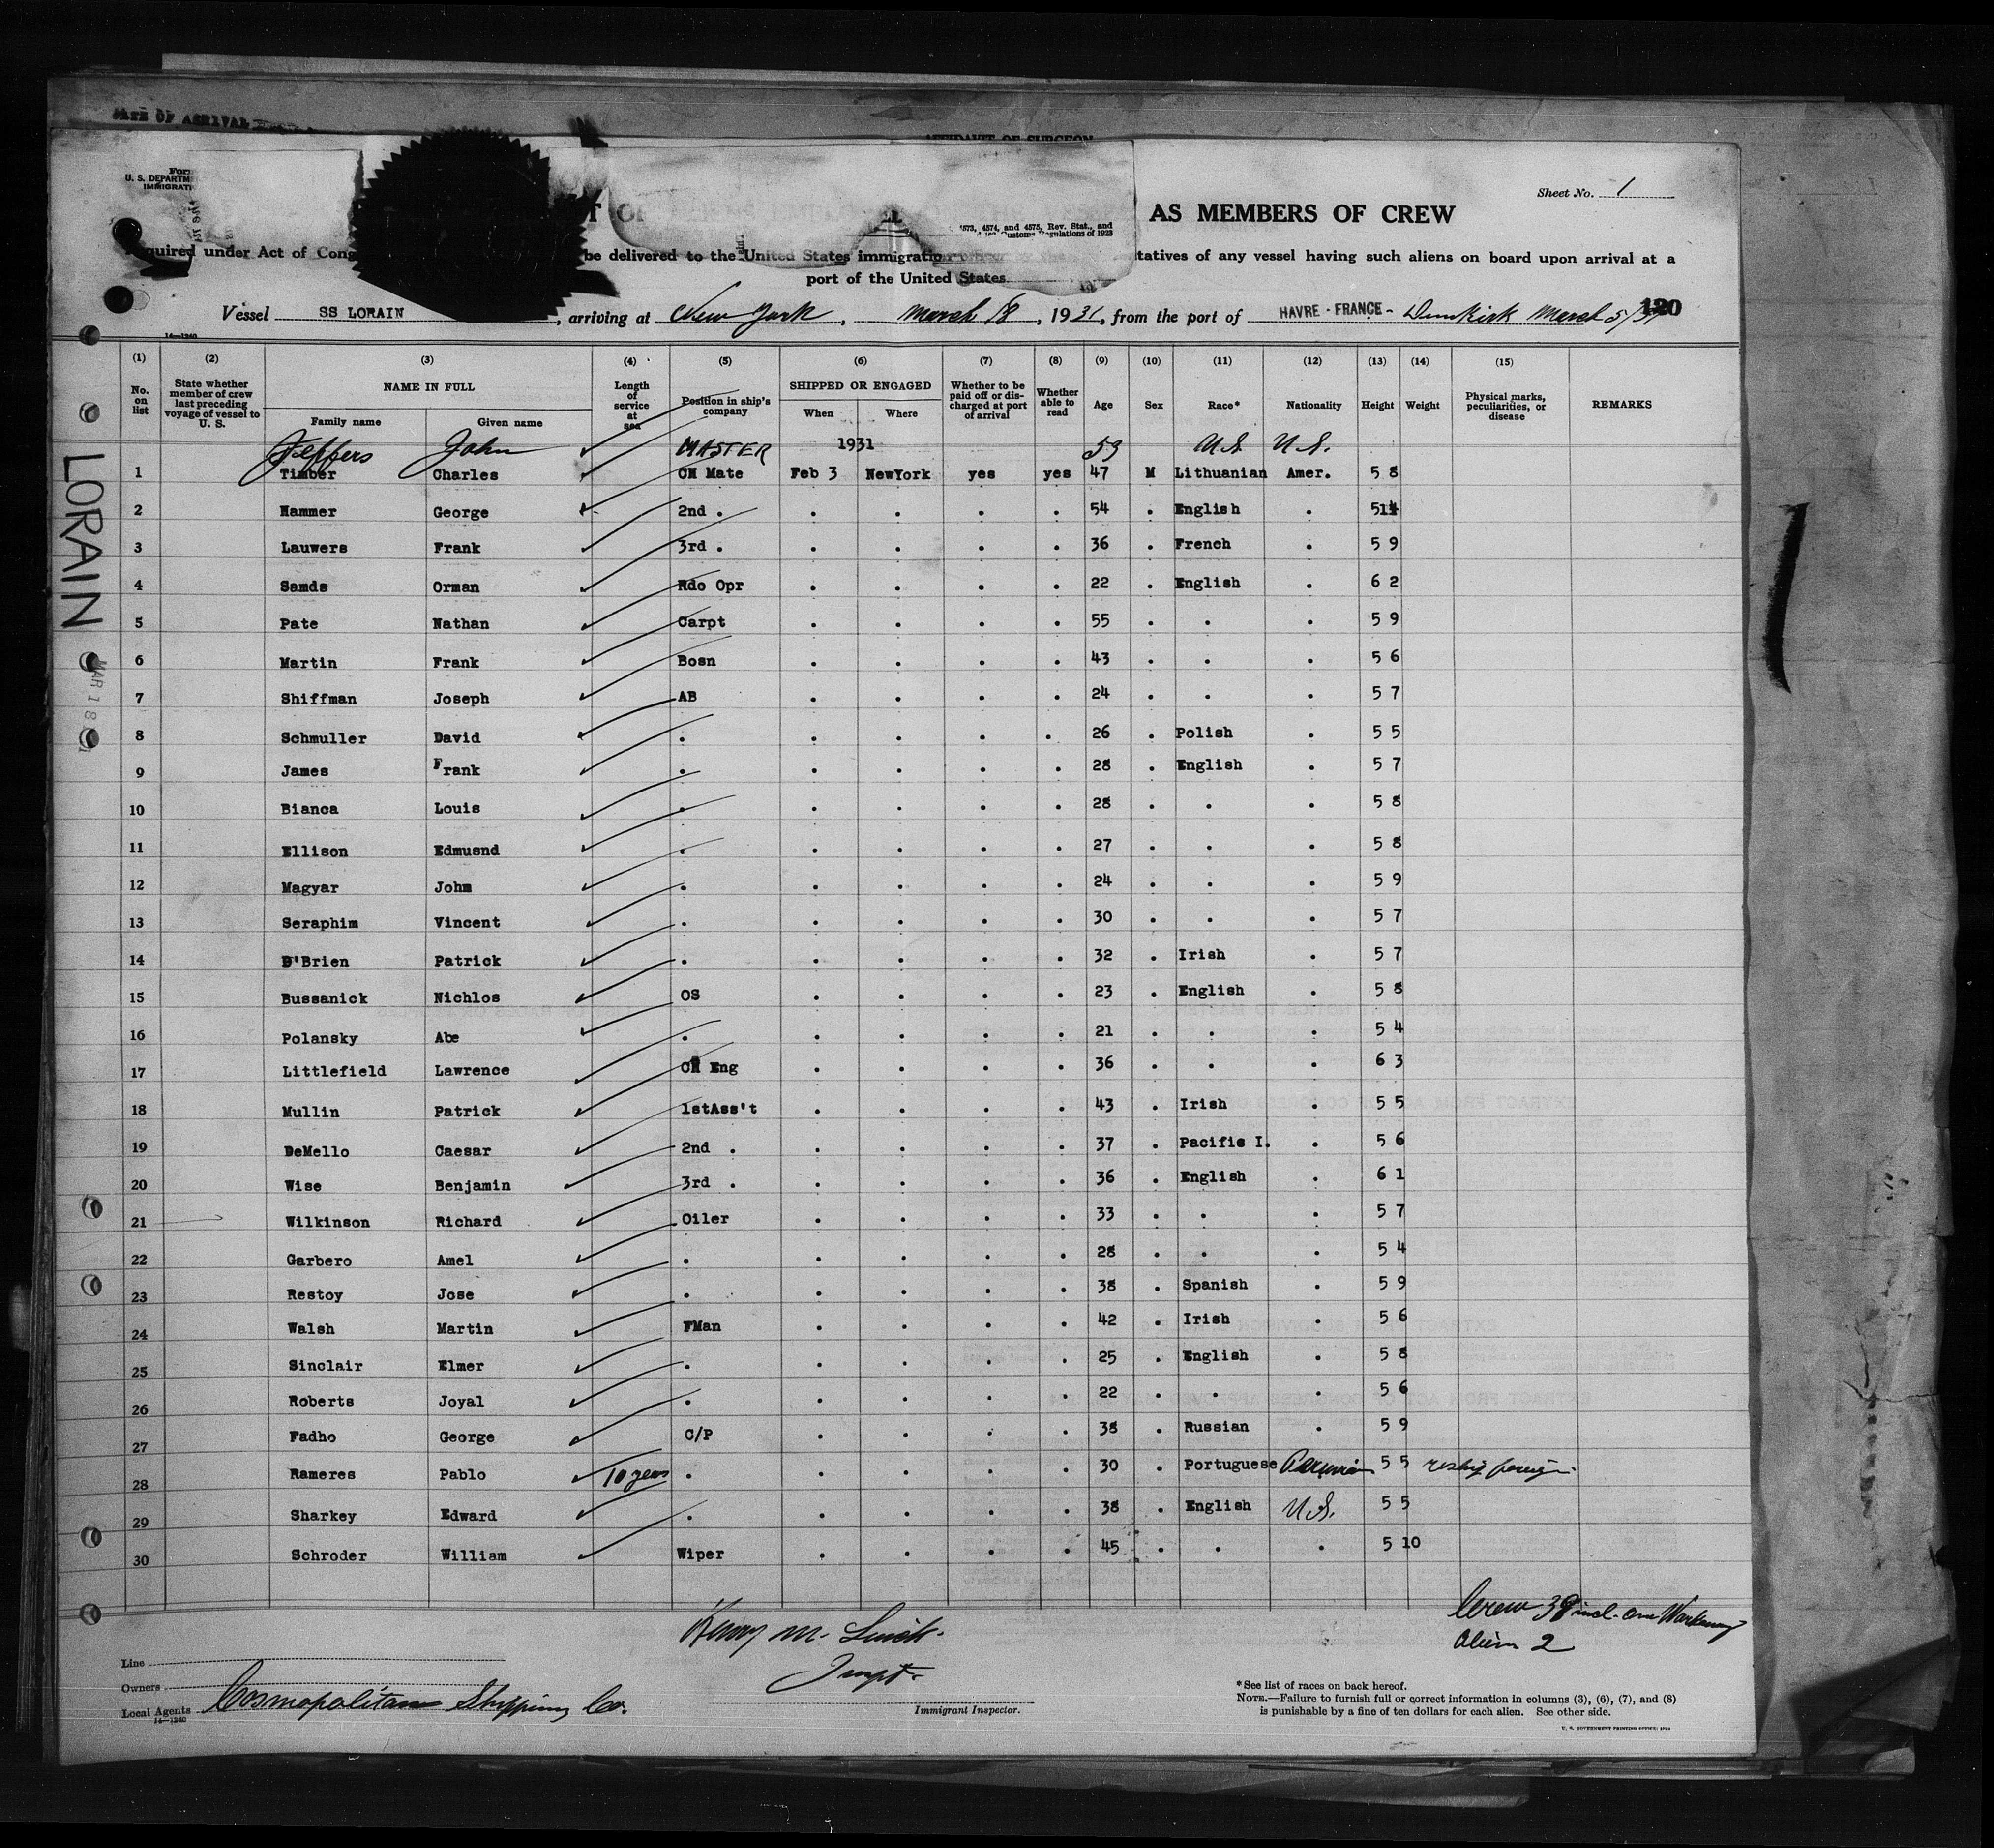 DATE OF ARRIVAL
AFFIDAVIT OF SURGEON
U. S. DEPARTM
IMMIGRATI
Sheet No. 1
AS MEMBERS OF CREW
4573, 4574, and 4575, Rev. Stat., and
Customs Regulations of 1923
quired under Act of Cong be delivered to the United States immigration tatives of any vessel having such aliens on board upon arrival at a
port of the United States
120
Vessel SS LORAIN, arriving at New York, March 18, 1931, from the port of HAVRE - FRANCE - Dunkirk March 5/31
14—1240
(1) (2) (3) (4) (5) (6) (7) (8) (9) (10) (11) (12) (13) (14) (15)
No. on list State whether member of crew last preceding voyage of vessel to U. S. NAME IN FULL Family name Given name Length of service at sea Position in ship's company SHIPPED OR ENGAGED When Where Whether to be paid off or discharged at port of arrival Whether able to read Age Sex Race* Nationality Height Weight Physical marks, peculiarities, or disease REMARKS
Jeffers John MASTER 1931 53 U.S. U.S.
1 Timber Charles CH Mate Feb 3 NewYork yes yes 47 M Lithuanian Amer. 5 8
2 Hammer George 2nd . . . . . 54 . English . 511
3 Lauwers Frank 3rd . . . . . 36 . French . 5 9
4 Samds Orman Rdo Opr . . . . 22 . English . 6 2
5 Pate Nathan Carpt . . . . 55 . . . 5 9
6 Martin Frank Bosn . . . . 43 . . . 5 6
7 Shiffman Joseph AB . . . . 24 . . . 5 7
8 Schmuller David . . . . . 26 . Polish . 5 5
9 James Frank . . . . . 28 . English . 5 7
10 Bianca Louis . . . . . 28 . . . 5 8
11 Ellison Edmusnd . . . . . 27 . . . 5 8
12 Magyar Johm . . . . . 24 . . . 5 9
13 Seraphim Vincent . . . . . 30 . . . 5 7
14 O'Brien Patrick . . . . . 32 . Irish . 5 7
15 Bussanick Nichlos OS . . . . 23 . English . 5 8
16 Polansky Abe . . . . . 21 . . . 5 4
17 Littlefield Lawrence CH Eng . . . . 36 . . . 6 3
18 Mullin Patrick 1stAss't . . . . 43 . Irish . 5 5
19 DeMello Caesar 2nd . . . . . 37 . Pacific I. . 5 6
20 Wise Benjamin 3rd . . . . . 36 . English . 6 1
21 Wilkinson Richard Oiler . . . . 33 . . . 5 7
22 Garbero Amel . . . . . 28 . . . 5 4
23 Restoy Jose . . . . . 38 . Spanish . 5 9
24 Walsh Martin FMan . . . . 42 . Irish . 5 6
25 Sinclair Elmer . . . . . 25 . English . 5 8
26 Roberts Joyal . . . . . 22 . . . 5 6
27 Fadho George C/P . . . . 38 . Russian . 5 9
28 Rameres Pablo 10 years . . . . . 30 . Portuguese Peruvian 5 5 reship foreign
29 Sharkey Edward . . . . . 38 . English U.S. 5 5
30 Schroder William Wiper . . . . 45 . . . 5 10
LORAIN
MAR 18
Crew 38 incl. one Workaway
Alien 2
Line
Owners
Local Agents Cosmopolitan Shipping Co.
14—1240
Inspt.
Immigrant Inspector.
*See list of races on back hereof.
NOTE.—Failure to furnish full or correct information in columns (3), (6), (7), and (8)
is punishable by a fine of ten dollars for each alien. See other side.
U. S. GOVERNMENT PRINTING OFFICE